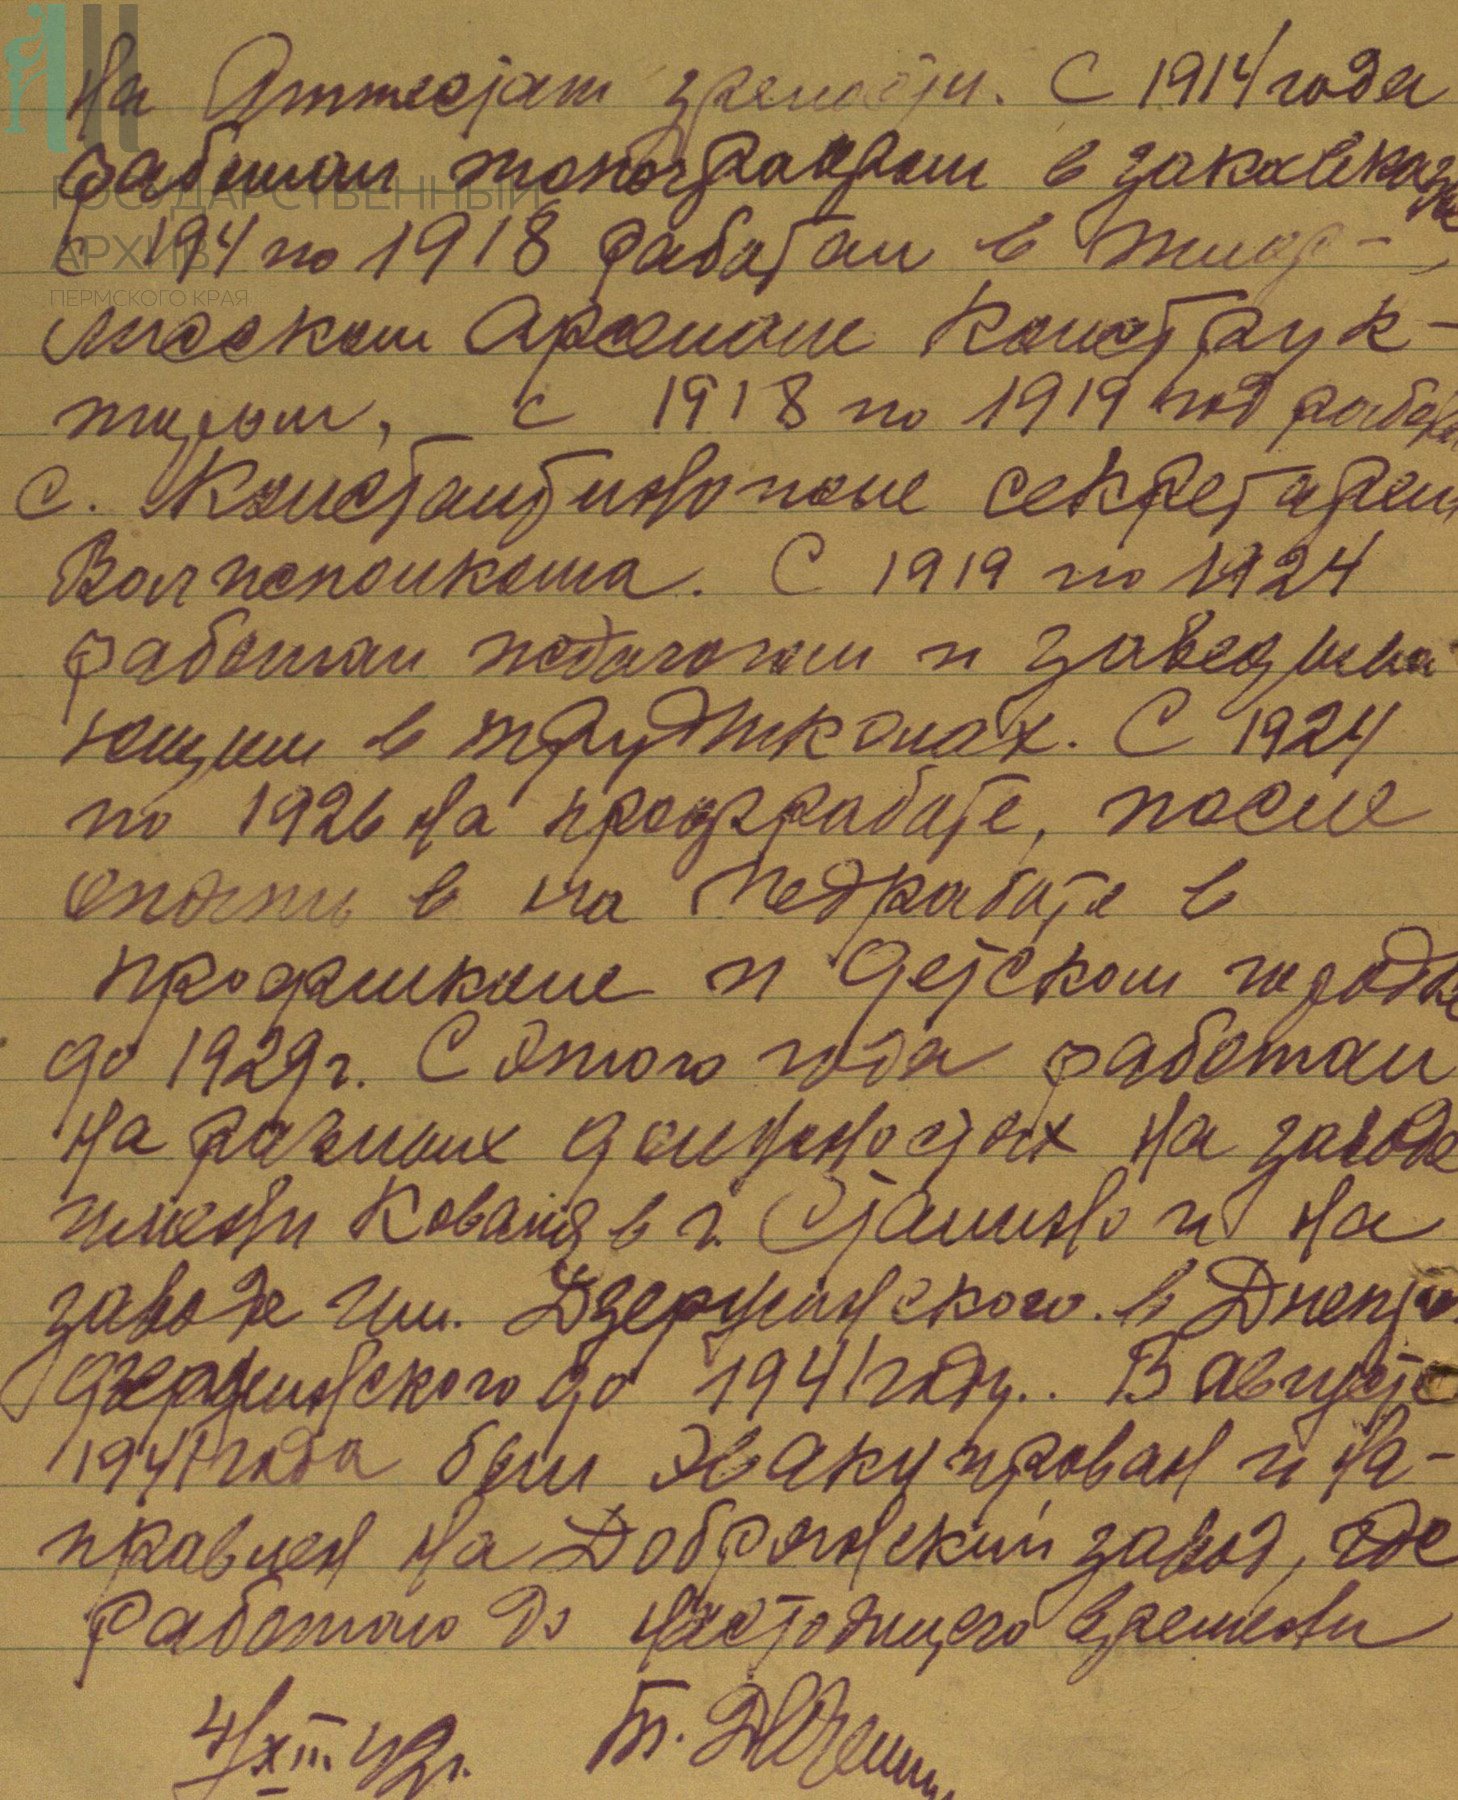 на Аттестат зрелости. С 1914 года
работал топографом в закавказье
с 194 по 1918 работал в Тиф-
лисском Арсенале Конструк-
тором, с 1918 по 1919 год работал
с. Константинополе секретарем
Волисполкома. С 1919 по 1924
работал педагогом и заведыва
ющим в трудшколах. С 1924
по 1926 на профработе, после
опять в на педработе в
профшколе и Детском городке
до 1929 г. С этого года работал
на разных должностях на заводе
имени Коваля в г. Сталино и на
заводе им. Дзержинского в Днепро
дзержинского до 1941 году.. В августе
1941 года был эвакуирован и на-
правлен на Добрянский завод, где
работаю до настоящего времени
4/XII 42 г. Т.
ГОСУДАРСТВЕННЫЙ
АРХИВ
ПЕРМСКОГО КРАЯ